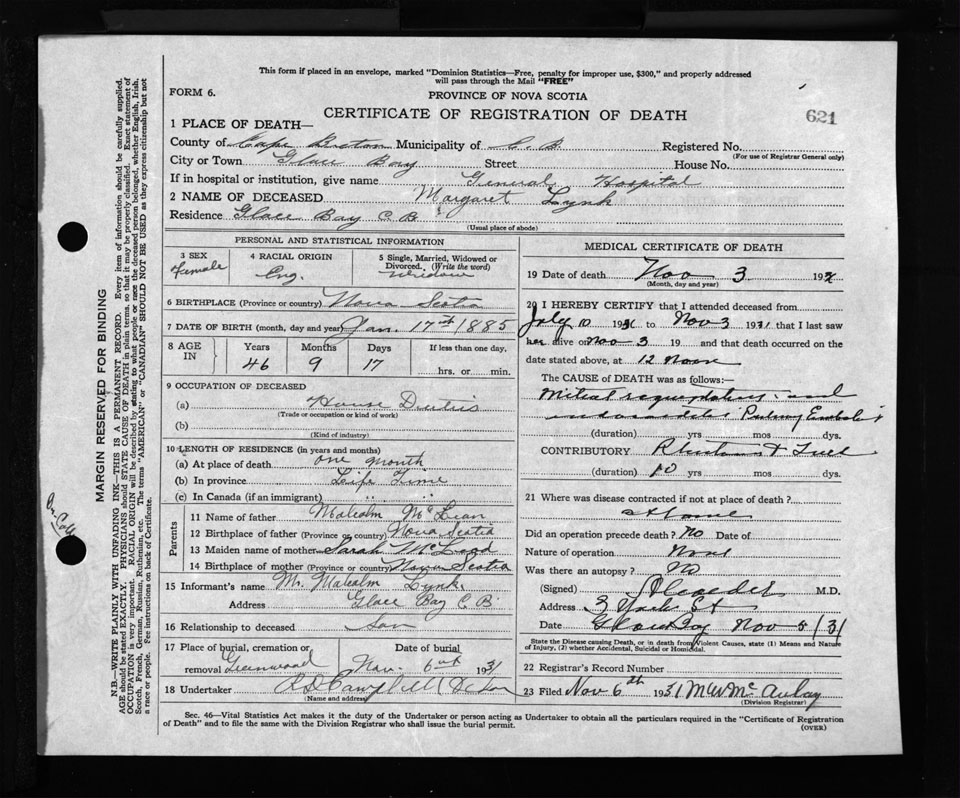 This form if placed in an envelope, marked "Dominion Statistics—Free, penalty for improper use, $300," and properly addressed
will pass through the Mail "FREE"
FORM 6.
PROVINCE OF NOVA SCOTIA
CERTIFICATE OF REGISTRATION OF DEATH
621
1 PLACE OF DEATH—
County of Cape Breton Municipality of C. B. Registered No.
(For use of Registrar General only)
City or Town Glace Bay Street House No.
If in hospital or institution, give name General Hospital
2 NAME OF DECEASED Margaret Lynk
Residence Glace Bay C. B.
(Usual place of abode)
PERSONAL AND STATISTICAL INFORMATION
3 SEX
Female
4 RACIAL ORIGIN
Eng.
5 Single, Married, Widowed or
Divorced. (Write the word)
Widow
6 BIRTHPLACE (Province or country) Nova Scotia
7 DATE OF BIRTH (month, day and year) Jan. 17th 1885
8 AGE IN
Years Months Days If less than one day.
46 9 17 hrs. or min.
9 OCCUPATION OF DECEASED
(a) House Duties
(Trade or occupation or kind of work)
(b)
(Kind of industry)
10 LENGTH OF RESIDENCE (in years and months)
(a) At place of death one month
(b) In province Life Time
(c) In Canada (if an immigrant) " "
Parents
11 Name of father Malcolm McLean
12 Birthplace of father (Province or country) Nova Scotia
13 Maiden name of mother Sarah McLeod
14 Birthplace of mother (Province or country) Nova Scotia
15 Informant's name Mr. Malcolm Lynk
Address Glace Bay C B
16 Relationship to deceased Son
17 Place of burial, cremation or Date of burial
removal Greenwood Nov. 6th 1931
18 Undertaker Campbell
(Name and address)
MEDICAL CERTIFICATE OF DEATH
19 Date of death Nov 3 19
(Month, day and year)
20 I HEREBY CERTIFY that I attended deceased from
July 10 1931 to Nov 3 1931 that I last saw
her alive on Nov 3 19 and that death occurred on the
date stated above, at 12 Noon
The CAUSE of DEATH was as follows:—
Mitral and
(duration) yrs mos dys.
CONTRIBUTORY
(duration) 10 yrs mos. dys.
21 Where was disease contracted if not at place of death?
at Home
Did an operation precede death? No Date of
Nature of operation None
Was there an autopsy? No
(Signed) M.D.
Address 3 York St
Date Glace Bay Nov 5/31
State the Disease causing Death, or in death from Violent Causes, state (1) Means and Nature
of Injury, (2) whether Accidental, Suicidal or Homicidal.
22 Registrar's Record Number
23 Filed Nov 6th 1931 McAulay
(Division Registrar)
Sec. 46—Vital Statistics Act makes it the duty of the Undertaker or person acting as Undertaker to obtain all the particulars required in the "Certificate of Registration
of Death" and to file the same with the Division Registrar who shall issue the burial permit.
(OVER)
MARGIN RESERVED FOR BINDING
N.B.—WRITE PLAINLY WITH UNFADING INK—THIS IS A PERMANENT RECORD. Every item of information should be carefully supplied.
AGE should be stated EXACTLY. PHYSICIANS should STATE CAUSE OF DEATH in plain terms, so that it may be properly classified. Exact statement of
OCCUPATION is very important. RACIAL ORIGIN will be described by stating to what people or race the deceased person belonged, whether English, Irish,
Scotch, French, German, Russian, Ruthenian, etc. The terms "AMERICAN" or "CANADIAN" SHOULD NOT BE USED as they express citizenship but not
a race or people. Fee instructions on back of Certificate.